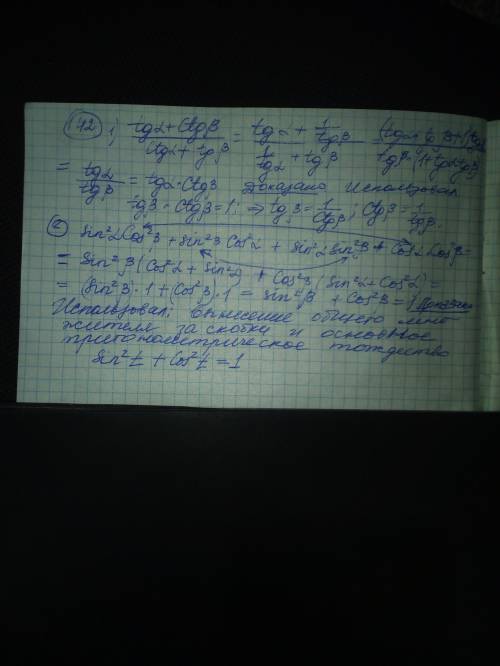 142 1) (tgα + ctgβ)/(ctgα + tgβ) = (tgα + 1/tgβ)/(1/tgα + tgβ) (tgα tgβ+1)tgα/tgβ·(1+tgαtgβ)
= tgα/tgβ = tgα·ctgβ Доказано Использовал
tgβ · ctgβ = 1; ⇒ tgβ = 1/ctgβ; ctgβ = 1/tgβ.
② sin²α cos²β + sin²β cos²α + sin²α sin²β + cos²α cos²β =
= sin²β (cos²α + sin²α) + cos²β (sin²α + cos²α) =
= (sin²β)·1 + (cos²β)·1 = sin²β + cos²β = 1 Доказано
Использовал: вынесение общего мно
жителя за скобки и основное
тригонометрическое тождество
sin²t + cos²t = 1